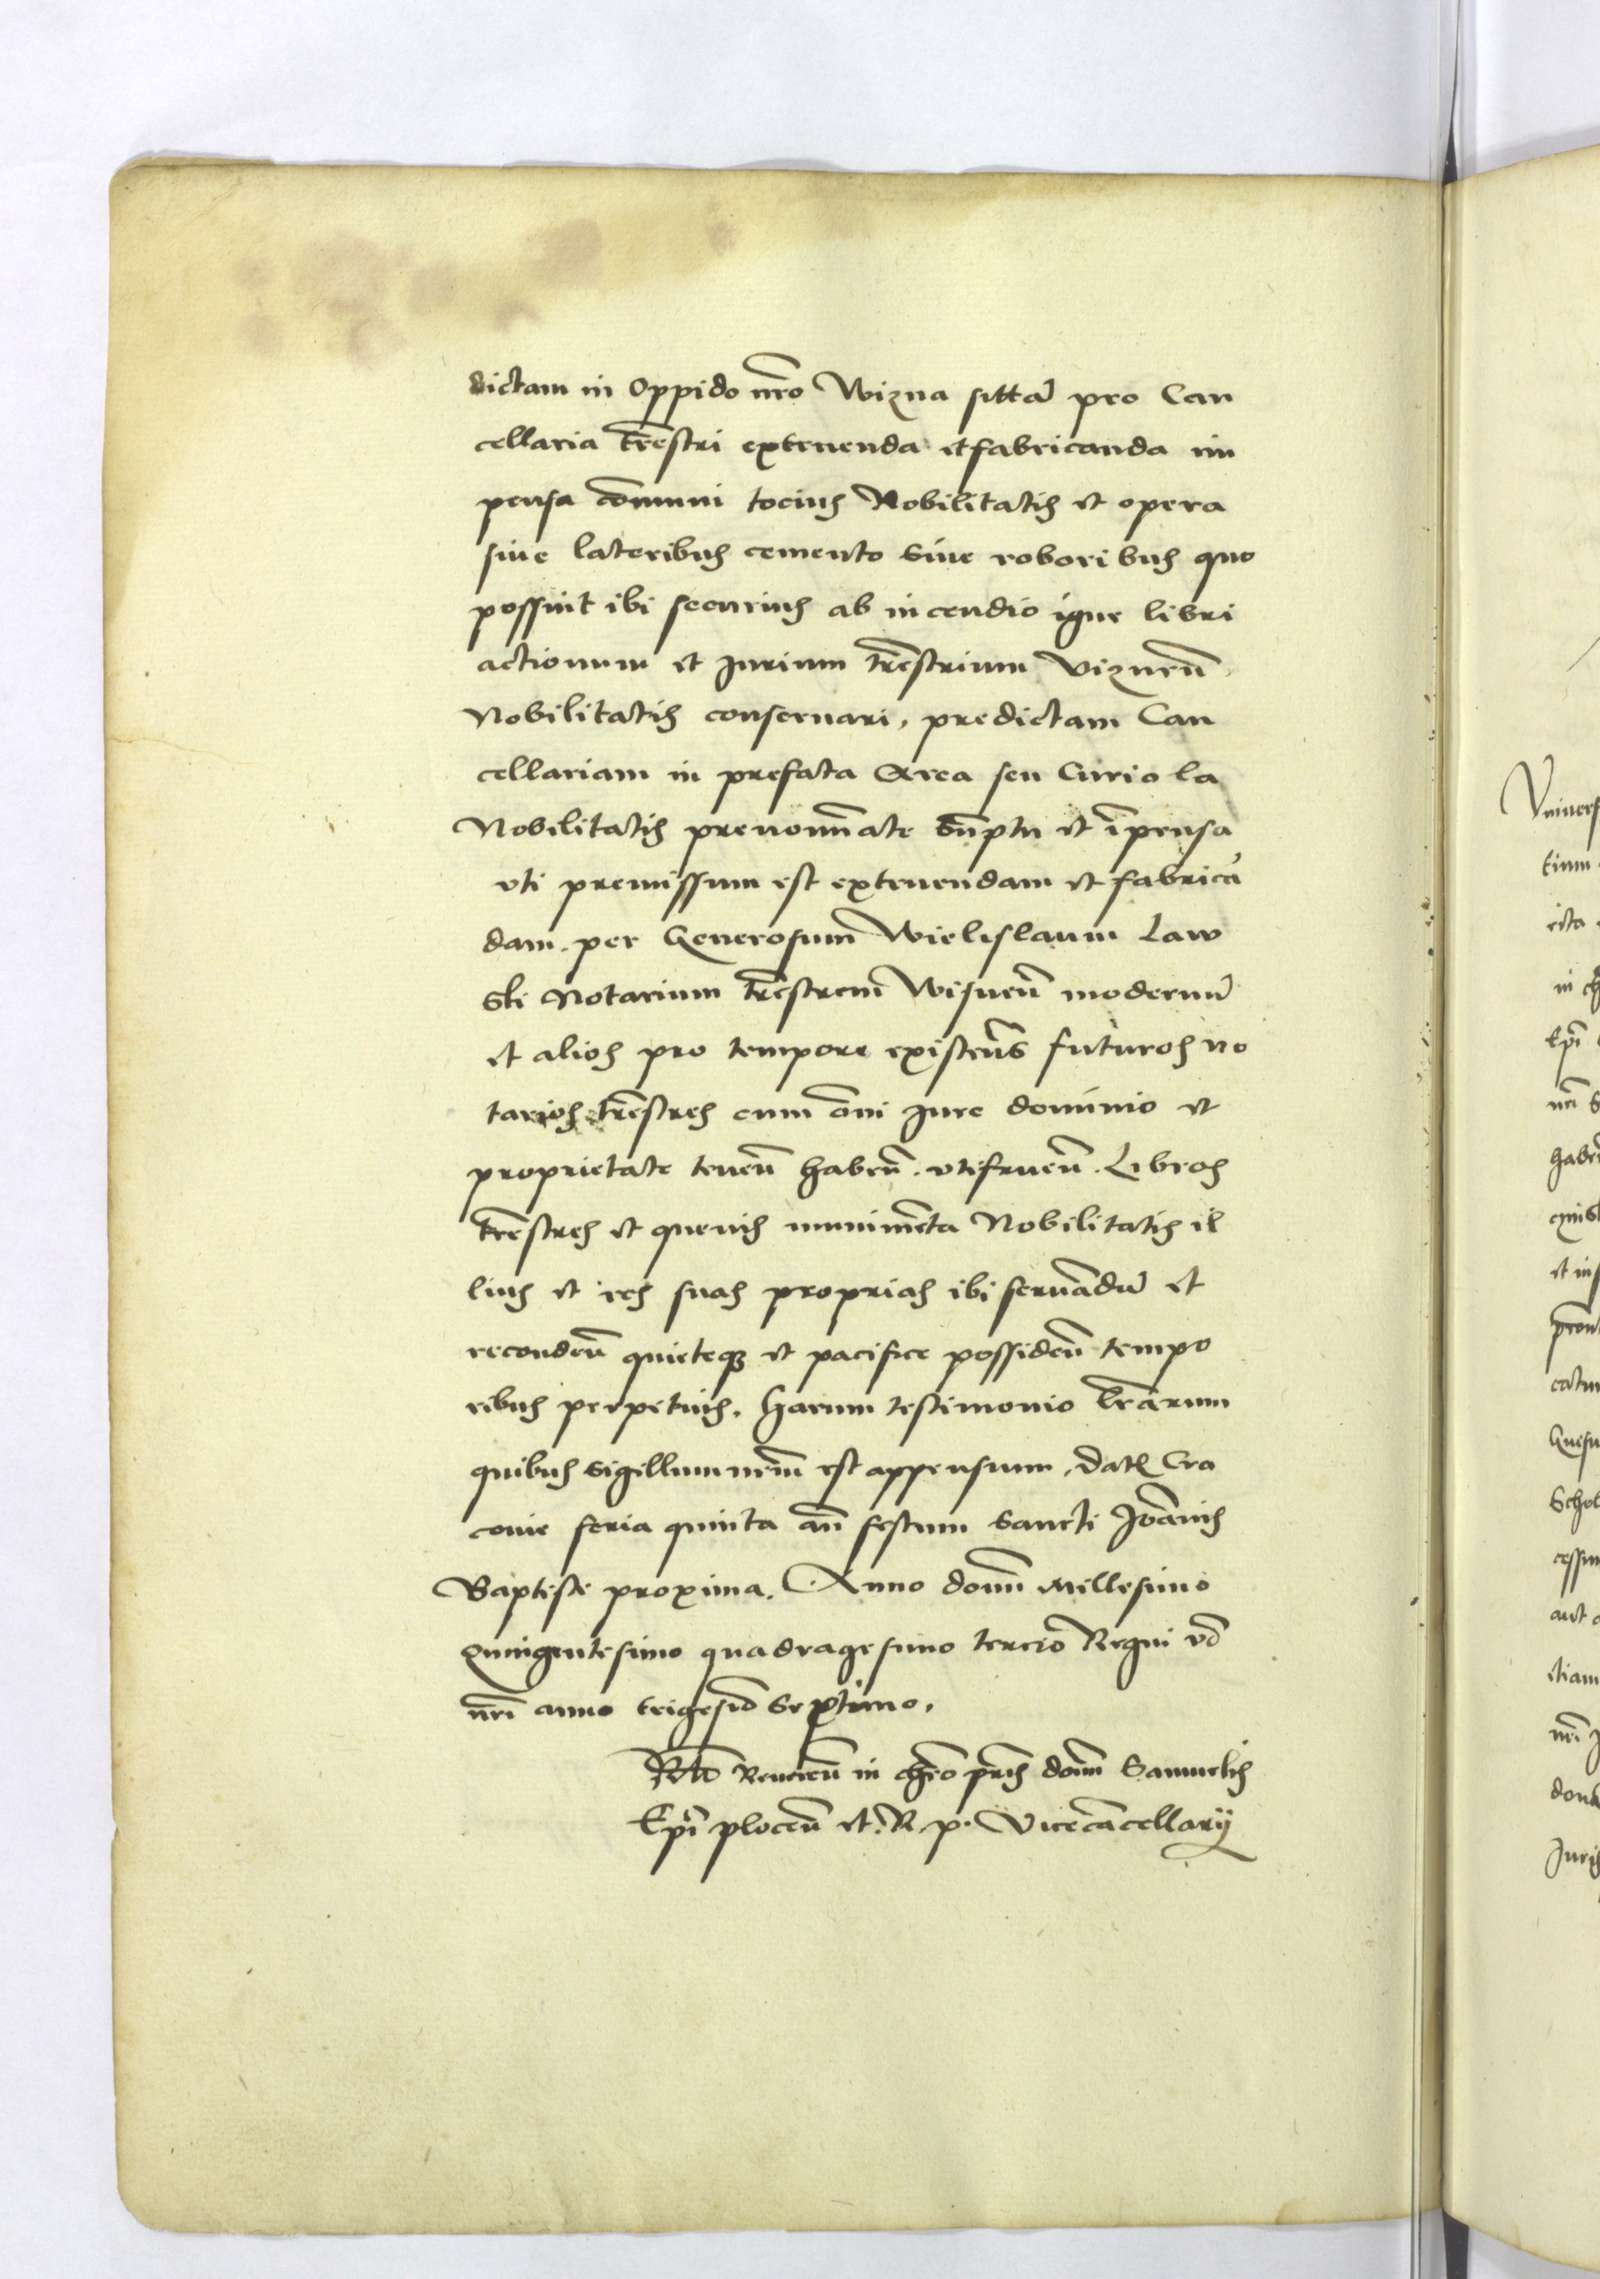 dictam in Oppido nr̄o Wizna sittā pro Can
cellaria tr̄estri extruenda et fabricanda im
pensa cōmuni tocius Nobilitatis et opera
siue lateribus cemento siue roboribus quo
possint ibi securius ab incendio igne libri
actionum et Jurium tr̄estrium Viznen̄
Nobilitatis conseruari, predictam Can
cellariam in prefata Area seu Curiola
Nobilitatis prenom̄inate sūptu et īpensa
vti premissum est extruendam et fabricā
dam per Generosum Wielislaum Law
ski Notarium tr̄estrem Wisnen̄ modernū
et alios pro tempore existen̄s futuros no
tarios tr̄estres cum om̄i Jure dominio et
proprietate tenen̄ haben̄ vtifruen̄ Libros
tr̄estres et queuis munimēta Nobilitatis il
lius et res suas proprias ibi seruādū et
reconden̄ quieteq; et pacifice possiden̄ tempo
ribus perpetuis. Harum testimonio lr̄arum
quibus sigillum nr̄um est appensum. Dat Cra
couie feria quinta an̄ festum Sancti Joānis
Baptiste proxima. Anno domī Millesimo
Quingentesimo quadragesimo tercio Regni vō
nr̄i anno trigesīo Septimo.
Rlō Reueren̄ in chr̄o pr̄is domī Samuelis
Ep̄i plocen̄ et R. p. Vicecācellarij